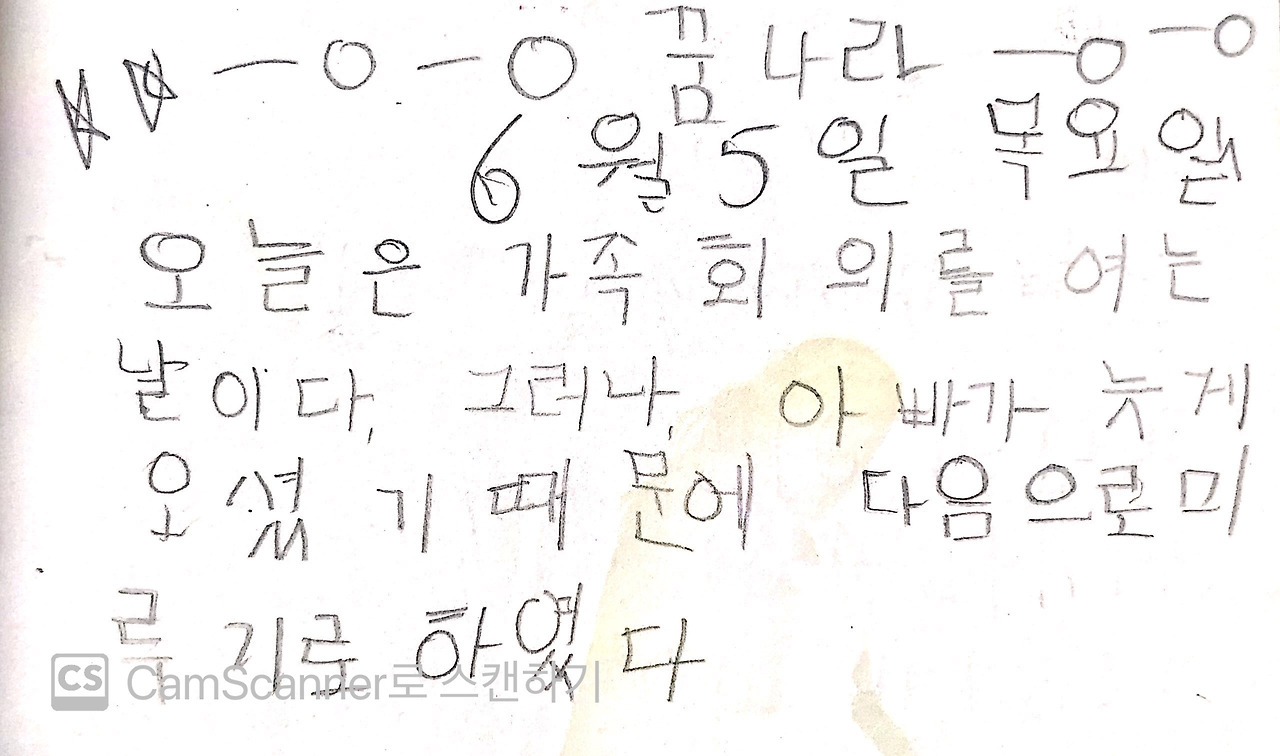 꿈나라
6월 5일 목요일
오늘은 가족회의를 여는
날이다, 그러나, 아빠가 늦게
오셨기 때문에 다음으로 미
루기로 하였다
CS CamScanner로 스캔하기